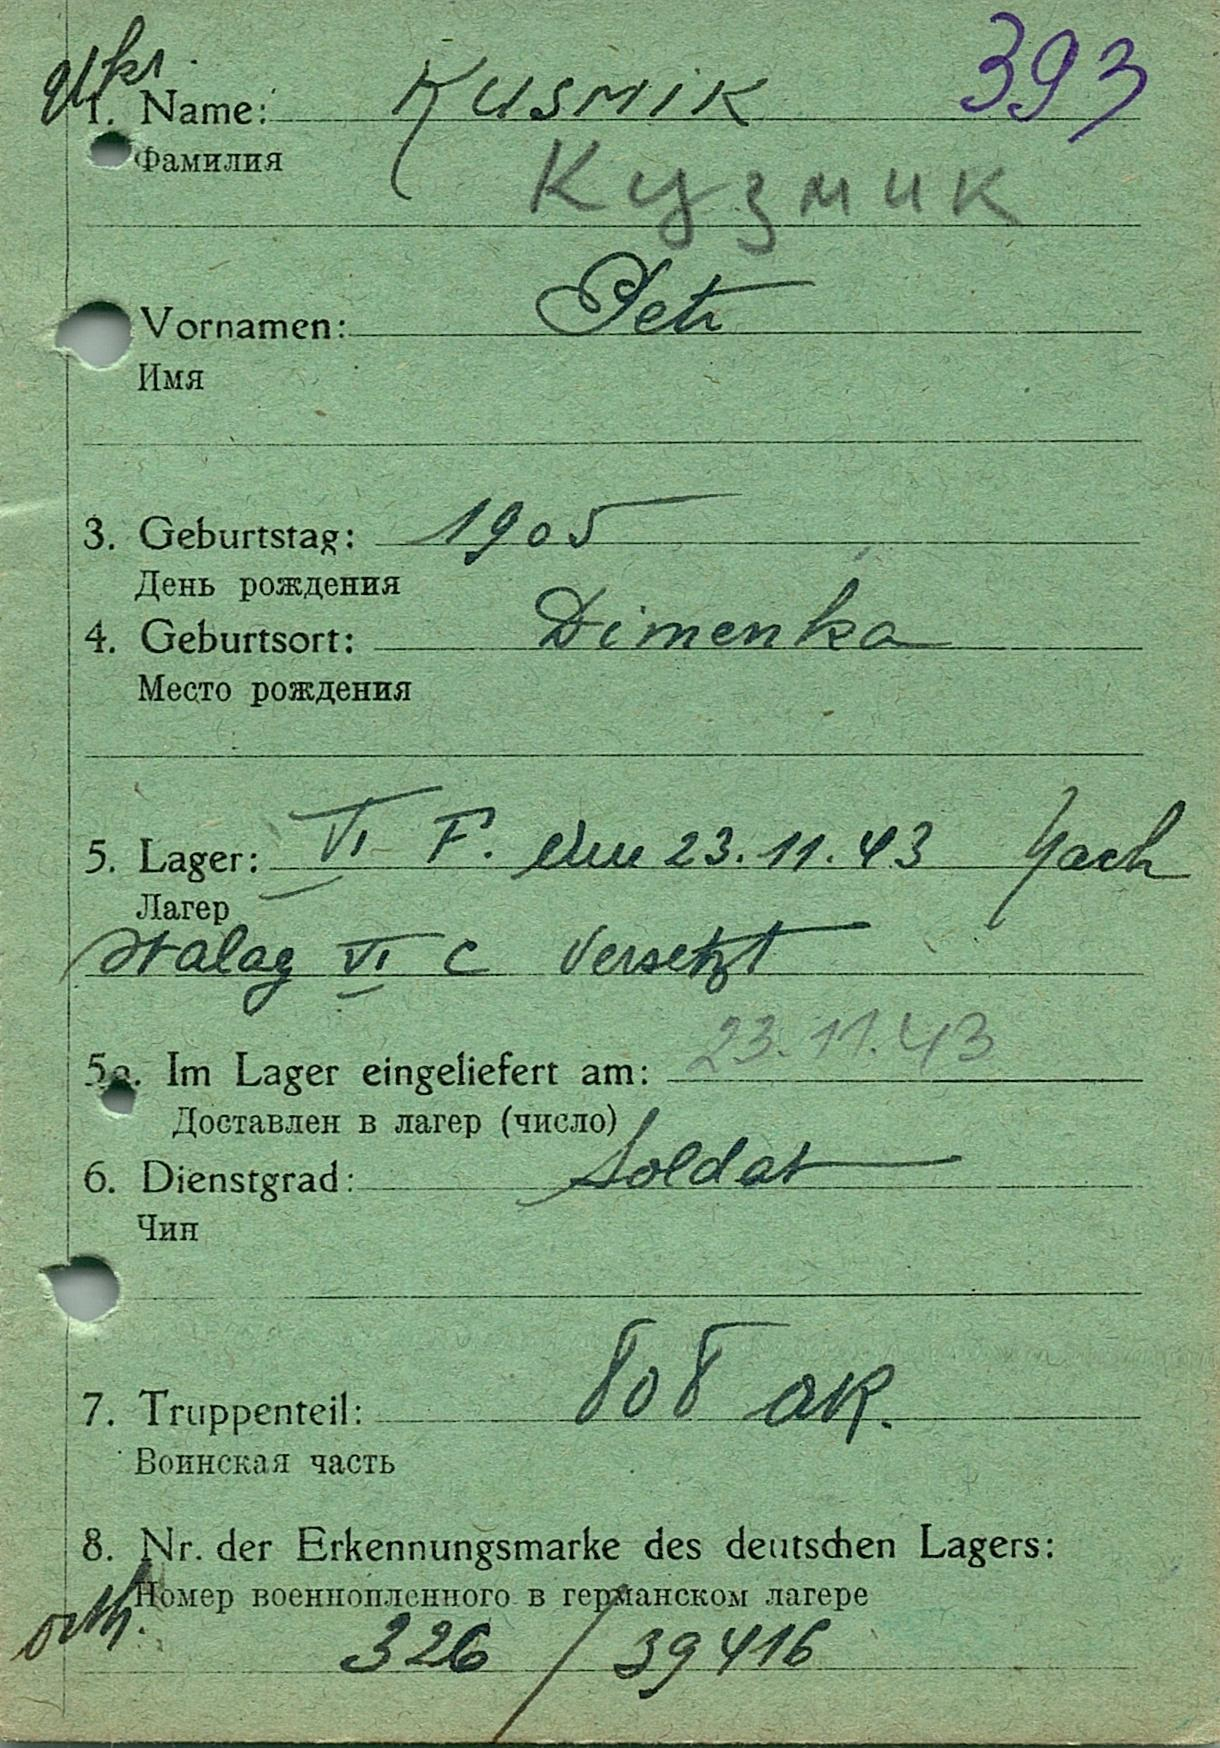 Ukr.
1. Name: Kusmik 393
Фамилия
Кузмик
Vornamen: Petr
Имя
3. Geburtstag: 1905
День рождения
4. Geburtsort: Dimenka
Место рождения
5. Lager: VI F. den 23.11.43 nach
Лагер
Stalag VI C versetzt
5a. Im Lager eingeliefert am: 23.11.43
Доставлен в лагер (число)
6. Dienstgrad: Soldat
Чин
7. Truppenteil: 808 AR.
Воинская часть
8. Nr. der Erkennungsmarke des deutschen Lagers:
Номер военнопленного в германском лагере
orth.
326 / 39416